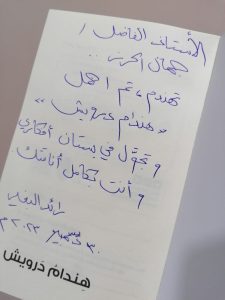 الأستاذ الفاضل /
جمال الحربي ...
تهندم، ثم ادخل
«هندام درويش»
و تجوّل في بستان أفكاري
و أنت بكامل أناقتك
رائد البغلي
٣٠ ديسمبر ٢٠٢٣ م
هِندامُ دَرويش